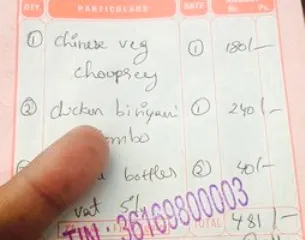 QTY. PARTICULARS RATE Rs. Ps.
① Chinese veg ① 180/-
Choupsey
② chicken biriyani ① 240/-
bottles ② 40/-
vat 5%
TOTAL 481/-
TIN : 36169800003